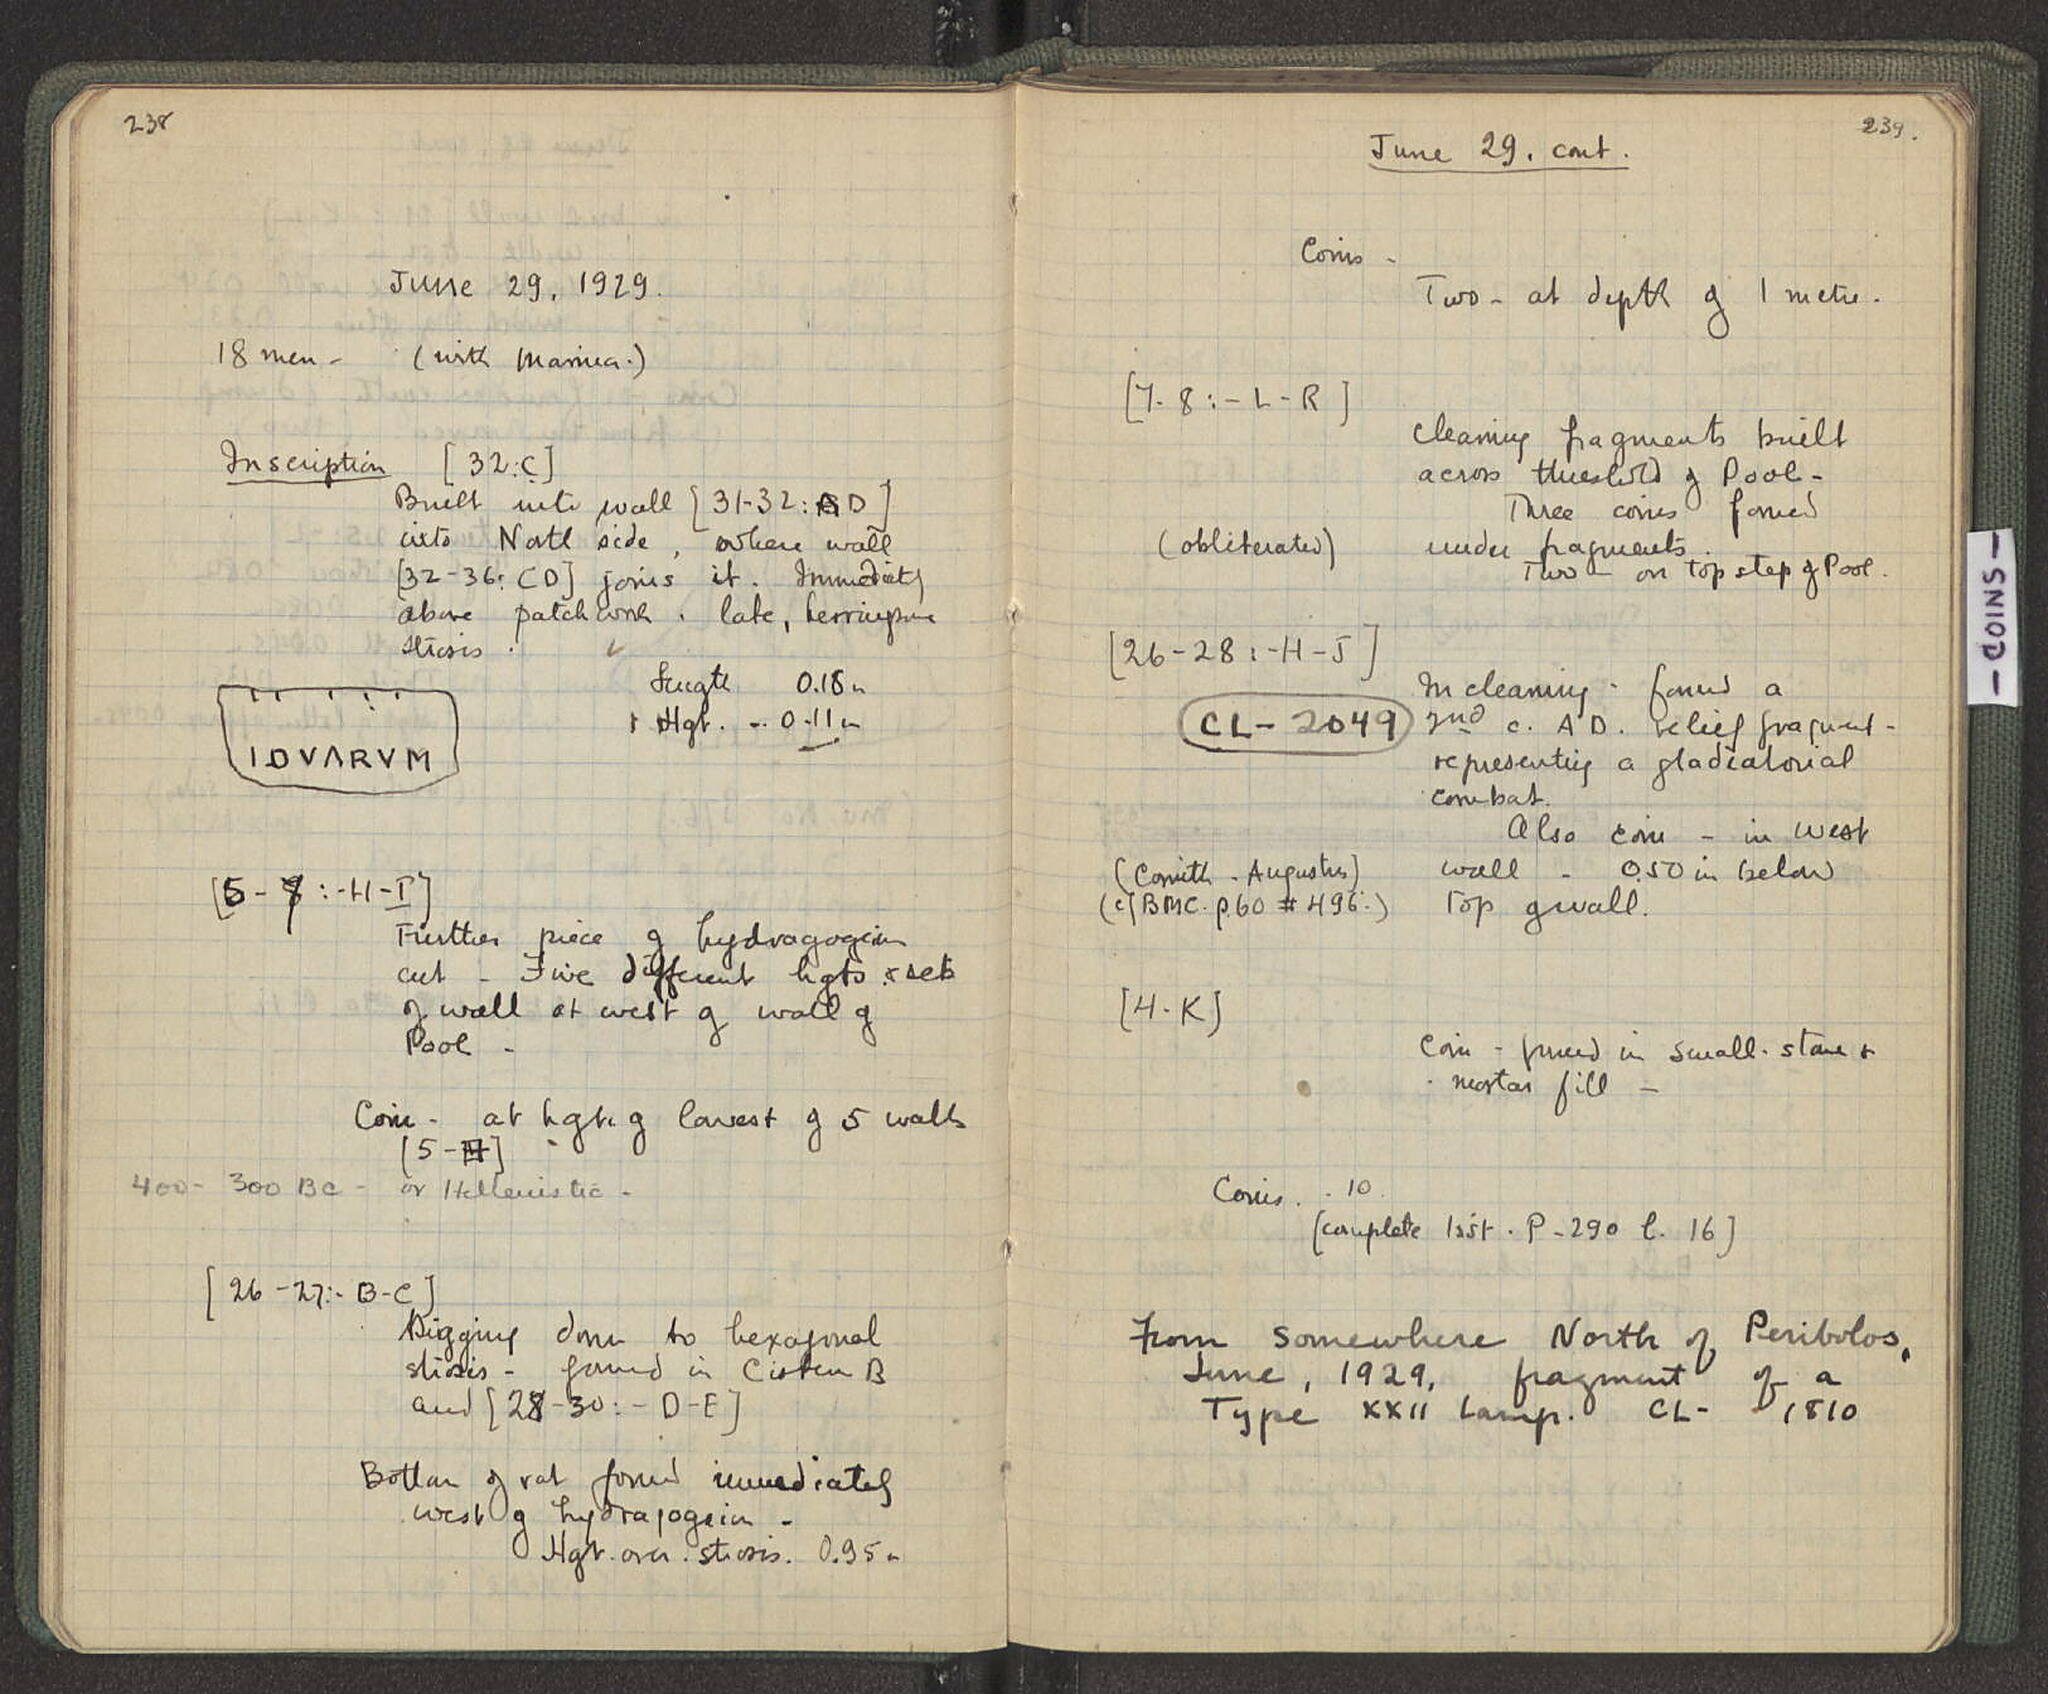 238
June 29, 1929.
18 men - (with Marinea.)
Inscription [32:C]
Built into wall [31-32: D]
into North side, where wall
[32-36: CD] joins it. Immediately
above patchwork. late, herringbone
strosis.
Length 0.18m
Hgt. - 0.11m
IDVARVM
[5-7:-H-I]
Further piece of hydragogeion
cut - Five different hgts & sets
of wall at west of wall of
Pool -
Coin - at hgt. of lowest of 5 walls
[5-H]
400-300 BC - or Hellenistic -
[26-27:- B-C]
Digging down to hexagonal
strosis - found in Cistern B
and [28-30:- D-E]
Bottom of vat found immediately
west of hydragogeion -
Hgt. over strosis. 0.95m
239.
June 29. cont.
Coins -
Two - at depth of 1 metre.
[7-8:-L-R]
Cleaning fragments built
across threshold of Pool -
Three coins found
(obliterated) under fragments.
Two - on top step of Pool.
[26-28:-H-J]
In cleaning - found a
CL-2049 2nd c. AD. relief fragment -
representing a gladiatorial
combat.
Also coin - in west
(Corinth - Augustus) wall - 0.50m below
(cf BMC. p.60 #496.) top of wall.
[4-K]
Coin - found in small stone &
mortar fill -
Coins. - 10.
[complete list. P-290 l. 16]
From somewhere North of Peribolos,
June, 1929, fragment of a
Type XXII Lamp. CL- 1810
- COINS -